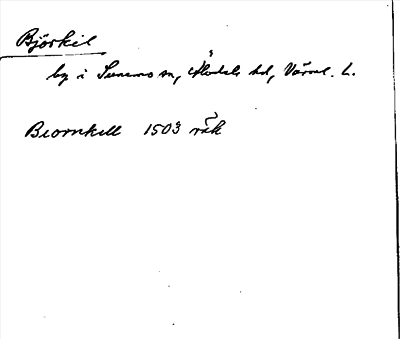 Björkil
by i Sunemo sn, Älvdals hd, Värml. L.
Biornkell 1503 räk